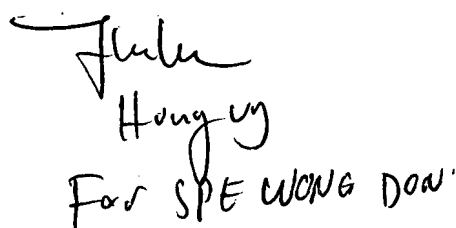 Hung uy
For SPE WONG DON